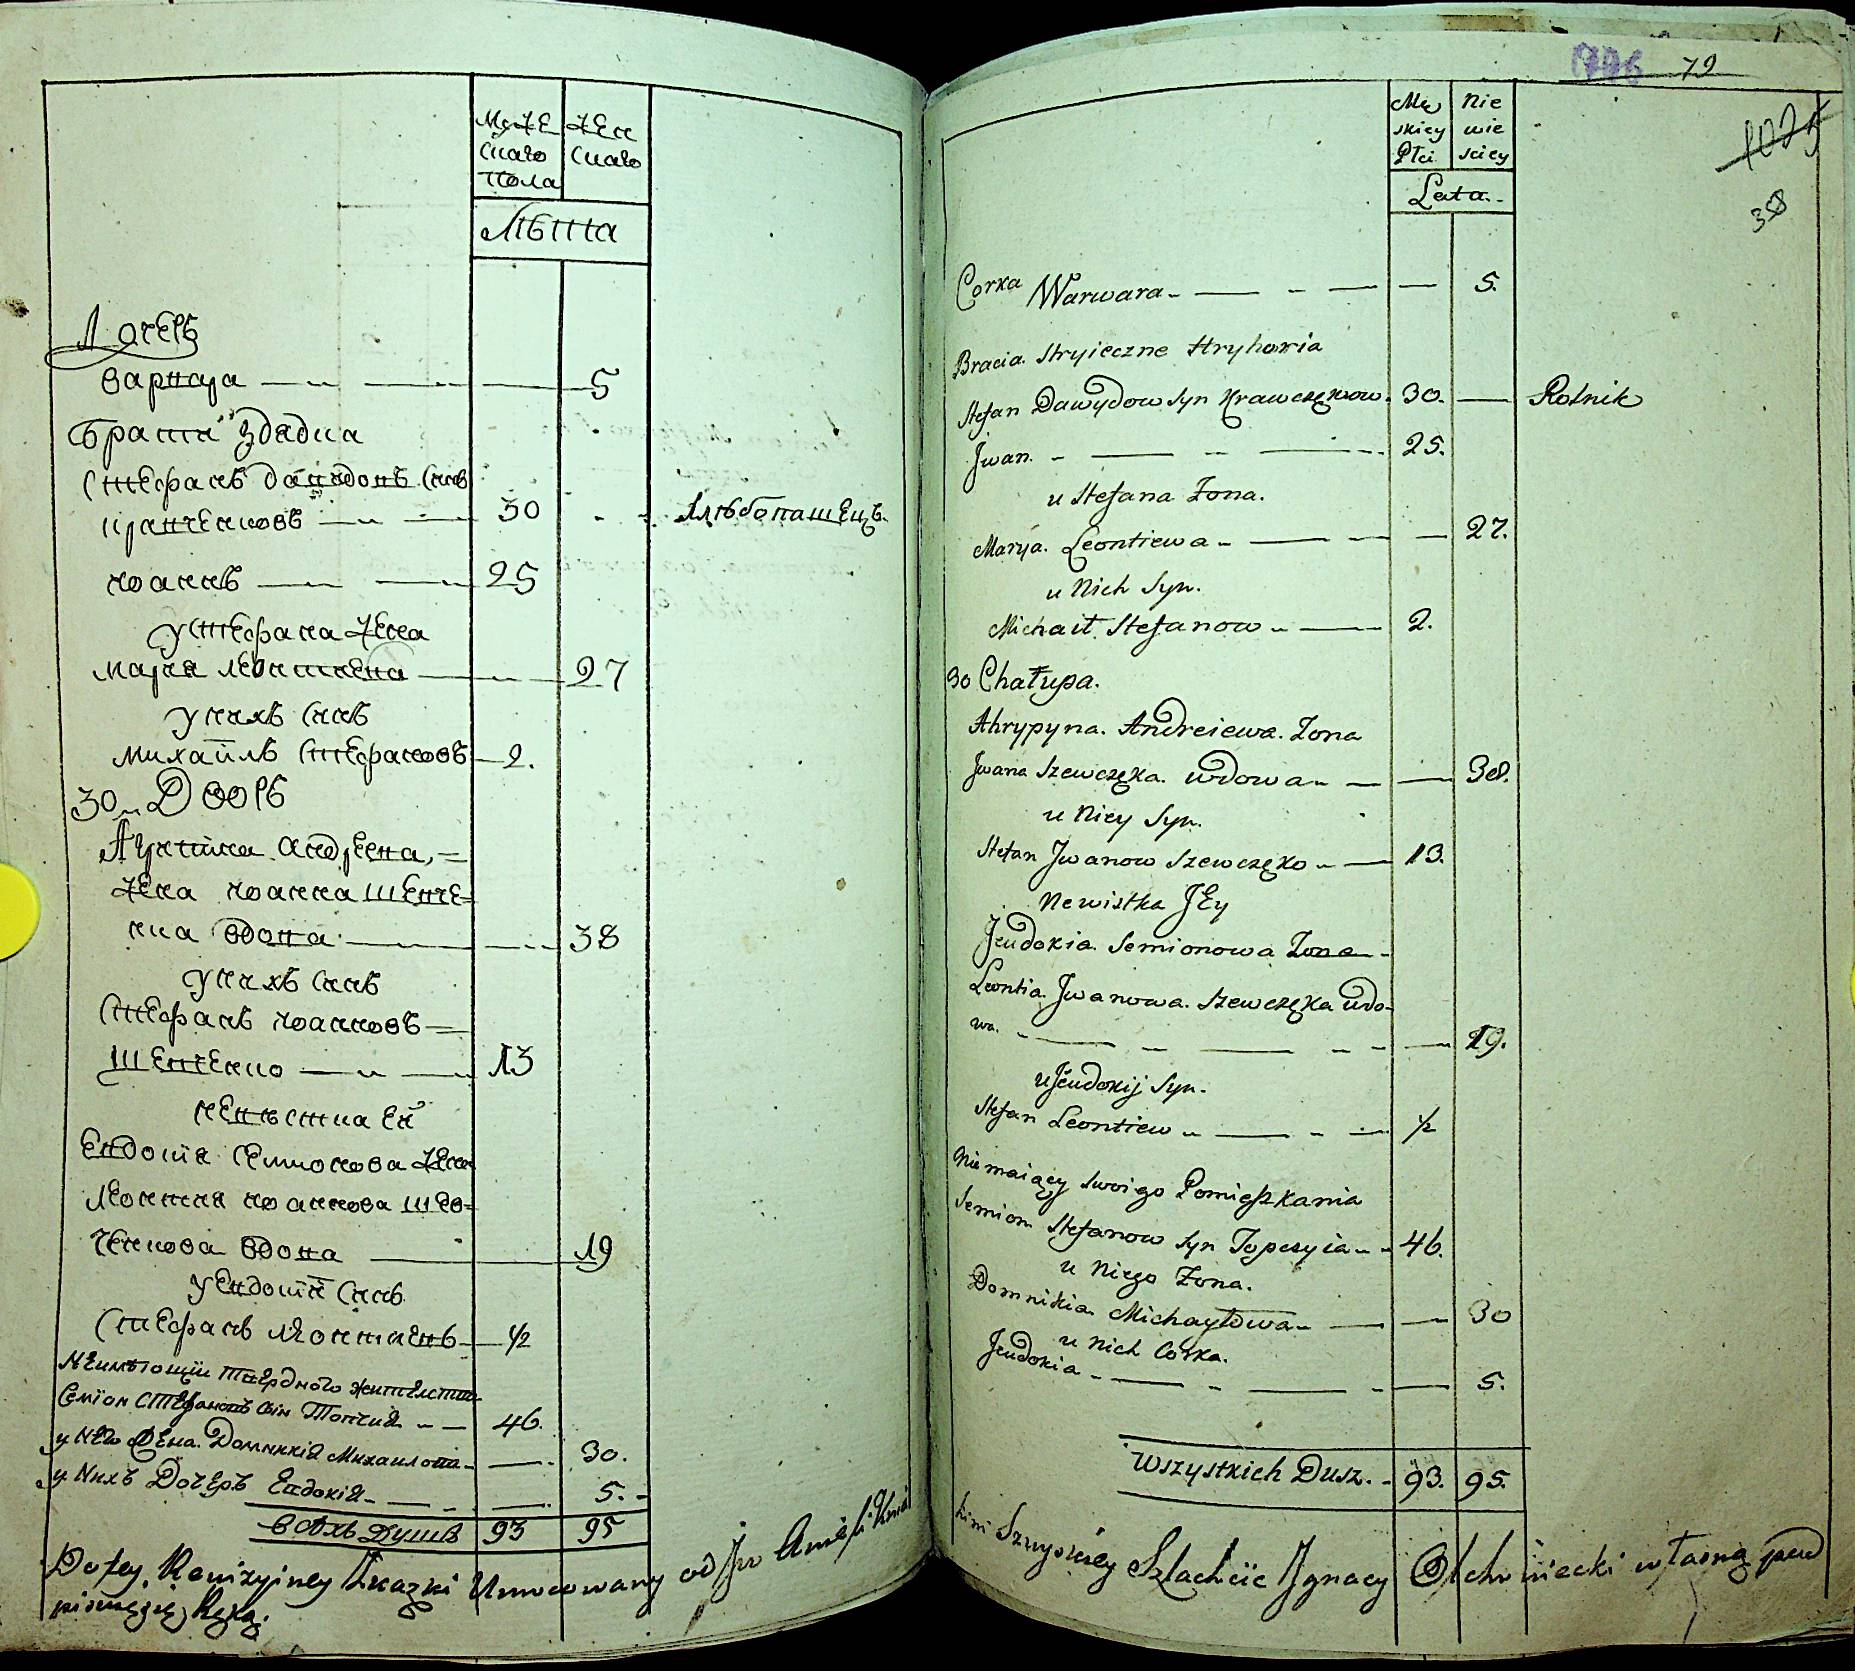 Муже Жен
скаго скаго
пола
Лѣта
Дочерь
варвара 5
братя з дядка
Стефанъ давидовъ синъ
кравченковъ 30 хлѣбопашецъ
иоаннъ 25
у стефана жена
мария леонтиева 27
у нихъ синъ
михаилъ стефановъ 2.
30 Дворъ
Агрипина андреева
жена иоанна шевче=
нка вдова 38
у нихъ синъ
Стефанъ иоанновъ
Шевченко 13
невѣстка ей
Евдокия семионова жена
леонтия иоаннова шев=
ченкова вдова 19
у Евдокии синъ
Стефанъ леонтиевъ 1/2
Неимѣющии твердного жителства
Семіон Стефановъ син Топчия 46.
у него жена Домникия Михаилова 30.
у нихъ Дочеръ Евдокия 5.
всѣхъ Душъ 93 95
Do tey Rewizyiney Skazki Umocowany od Jw
pisuię się Ręką.
1776 79
1025
38
Mę Nie
skiey wie
Płci sciey
Lata
Corka Warwara 5.
Bracia Stryieczne Hryhoria
Stefan Dawydow Syn Krawczękow 30. Rolnik
Jwan 25.
u Stefana Zona.
Marya Leontiewa 27.
u Nich Syn.
Michaił Stefanow 2.
30 Chałupa.
Ahrypyna Andreiewa Zona
Jwana Szewczęka wdowa 38.
u Niey Syn.
Stefan Jwanow Szewczęko 13.
Newistka JEy
Jeudokia Semionowa Zona
Leontia Jwanowa Szewczęka wdo-
wa. 19.
u Jeudokij Syn.
Stefan Leontiew 1/2
Nie maiący swoigo Pomięszkania
Semion Stefanow Syn Topczyia 46.
u Niego Zona.
Domnikia Michayłowa 30
u Nich Corka.
Jeudokia 5.
Wszystkich Dusz 93. 95.
Szlachcic Jgnacy własną pod